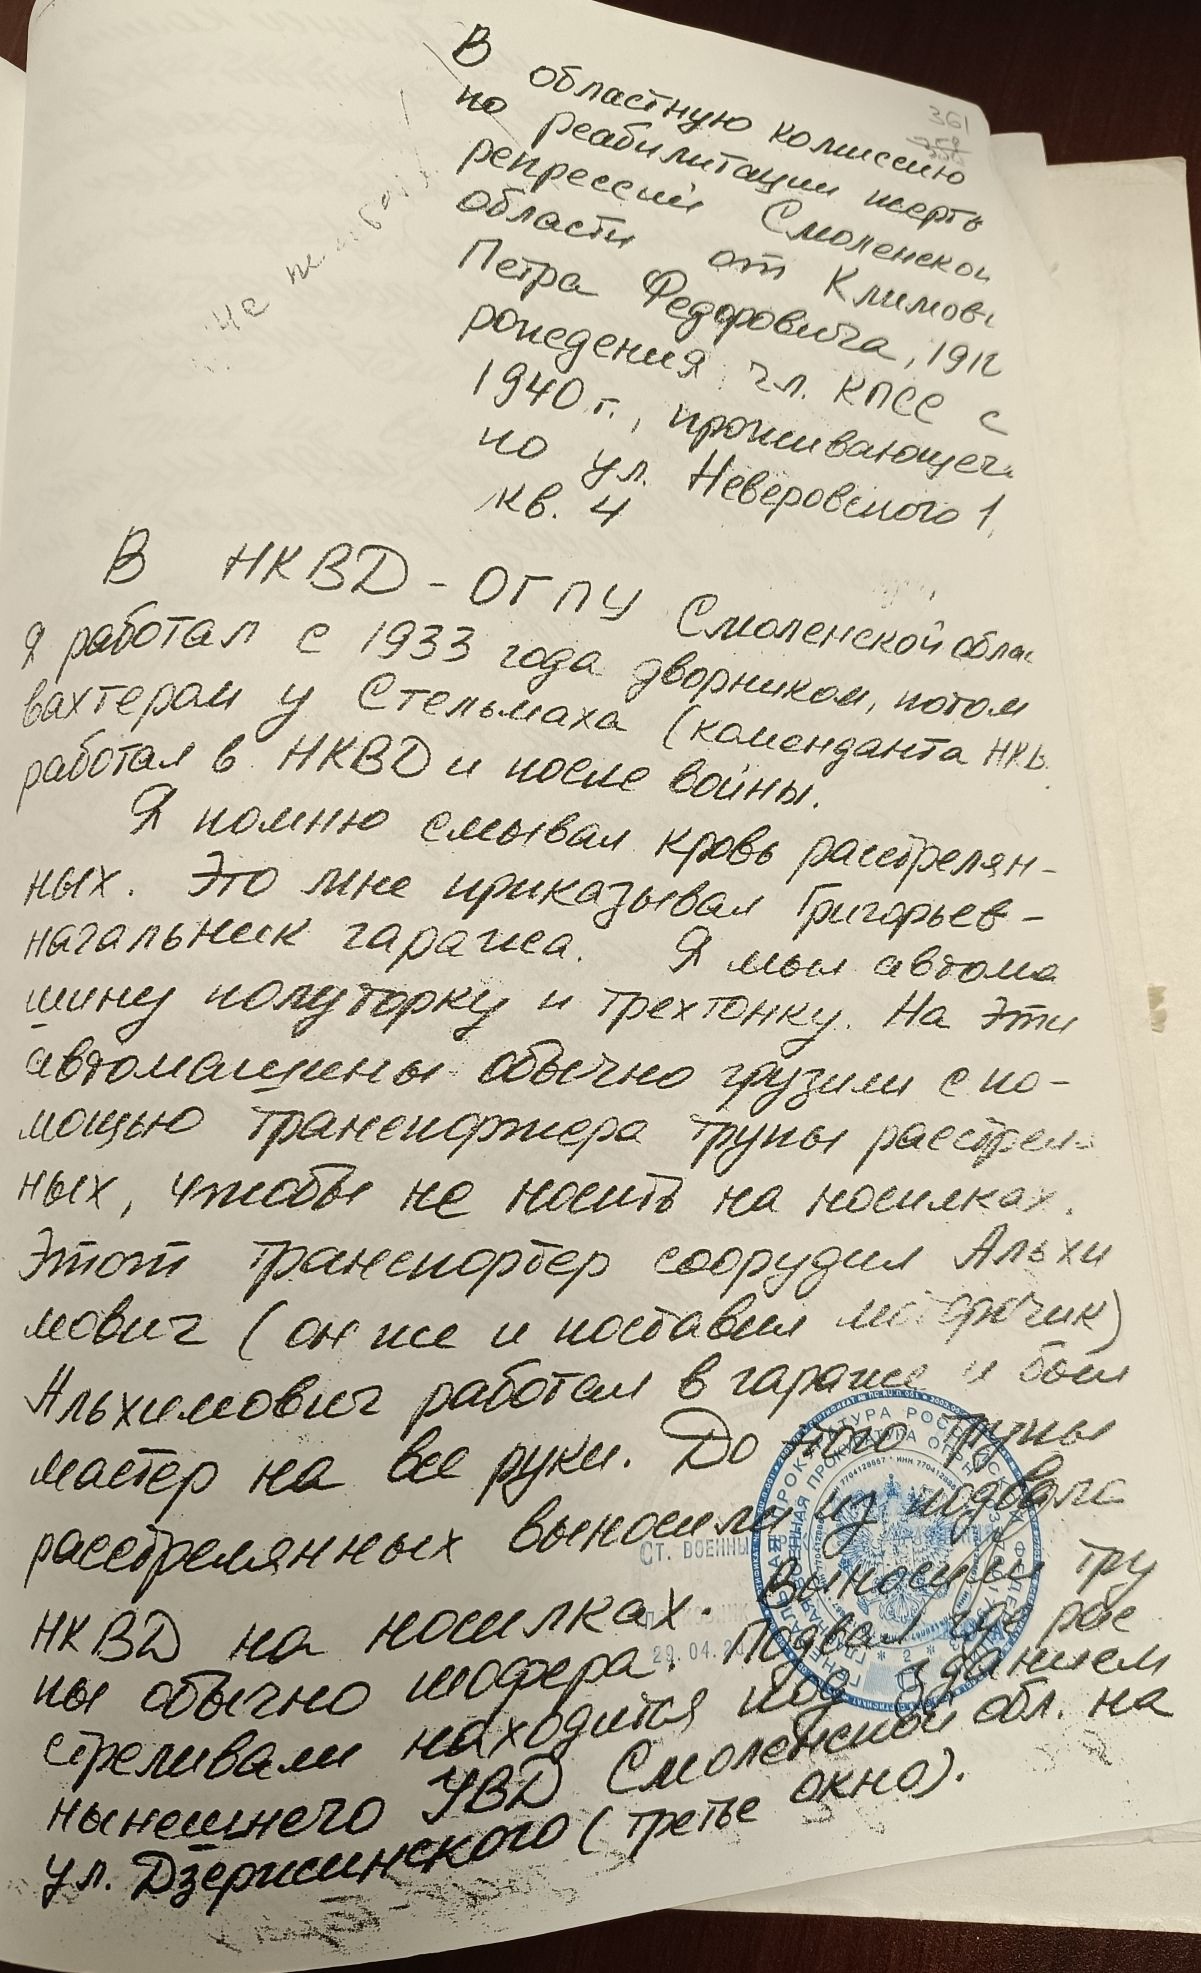 361
В областную комиссию
по реабилитации жертв
репрессий Смоленской
области от Климов
Петра Федоровича, 191
рождения, чл. КПСС с
1940 г., проживающег
по ул. Неверовского 1,
кв. 4
В НКВД - ОГПУ Смоленской облас
я работал с 1933 года дворником, потом
вахтером у Стельмаха (коменданта НКВ
работал в НКВД и после войны.
Я помню смывал кровь расстрелян-
ных. Это мне приказывал Григорьев -
начальник гаража. Я мыл автома
шину полуторку и трехтонку. На эти
автомашины обычно грузили с по-
мощью транспортера трупы расстрел
ных, чтобы не носить на носилках.
Этот транспортер соорудил Альхи
мович (он же и поставил моторчик)
Альхимович работал в гараже и был
мастер на все руки. До этого трупы
расстрелянных выносили из подвала
НКВД на носилках. Выносили тру
пы обычно шофера. Подвал где рас
стреливали находится под зданием
нынешнего УВД Смоленской обл. на
ул. Дзержинского (третье окно).
СТ. ВОЕННЫ
29.04.20
ГЕНЕРАЛЬНАЯ ПРОКУРАТУРА РОССИЙСКОЙ ФЕДЕРАЦИИ
ГЛАВНАЯ ВОЕННАЯ ПРОКУРАТУРА
* 2 *